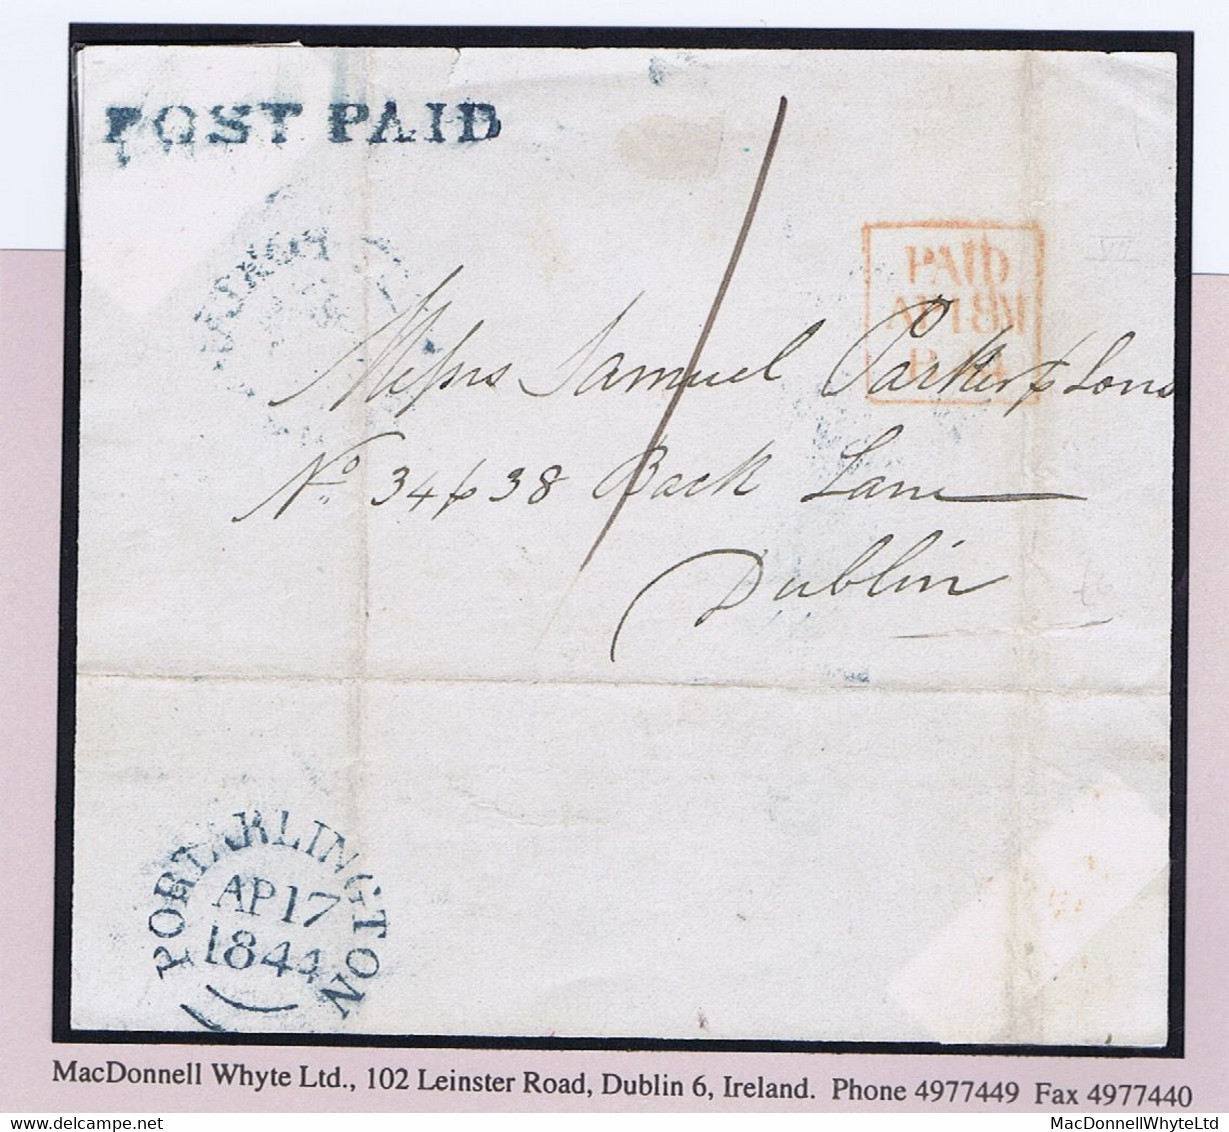 POST PAID
PAID
AP 18
1844
Messrs Samuel Parker & Sons
No. 34 & 38 Back Lane
Dublin
£6
PORTARLINGTON
AP 17
1844
MacDonnell Whyte Ltd., 102 Leinster Road, Dublin 6, Ireland. Phone 4977449 Fax 4977440
MacDonnellWhyteLtd